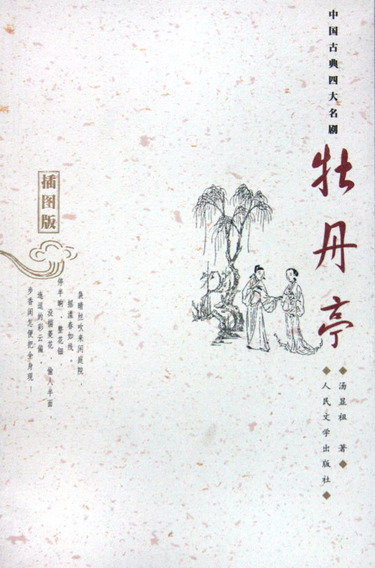 中国古典四大名剧
牡丹亭
汤显祖 著
人民文学出版社
插图版
袅晴丝吹来闲庭院，
摇漾春如线。
停半晌、整花钿
没揣菱花、偷人半面，
迤逗的彩云偏。
步香闺怎便把全身现！